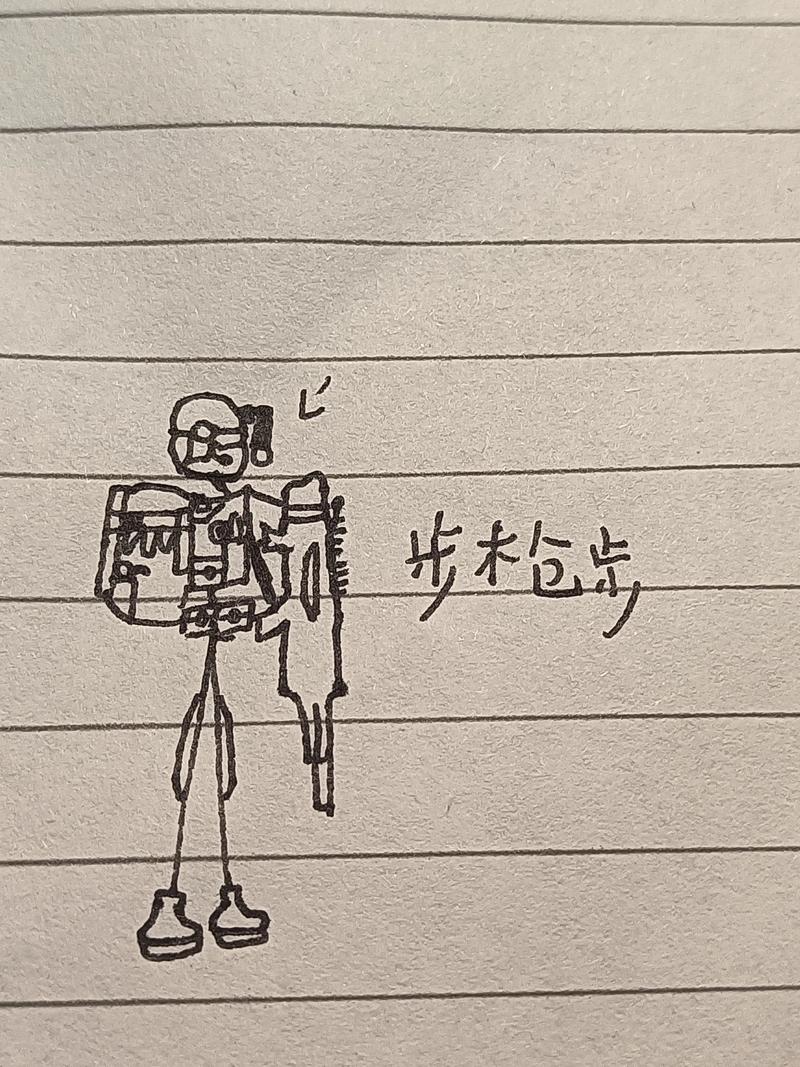 步枪步